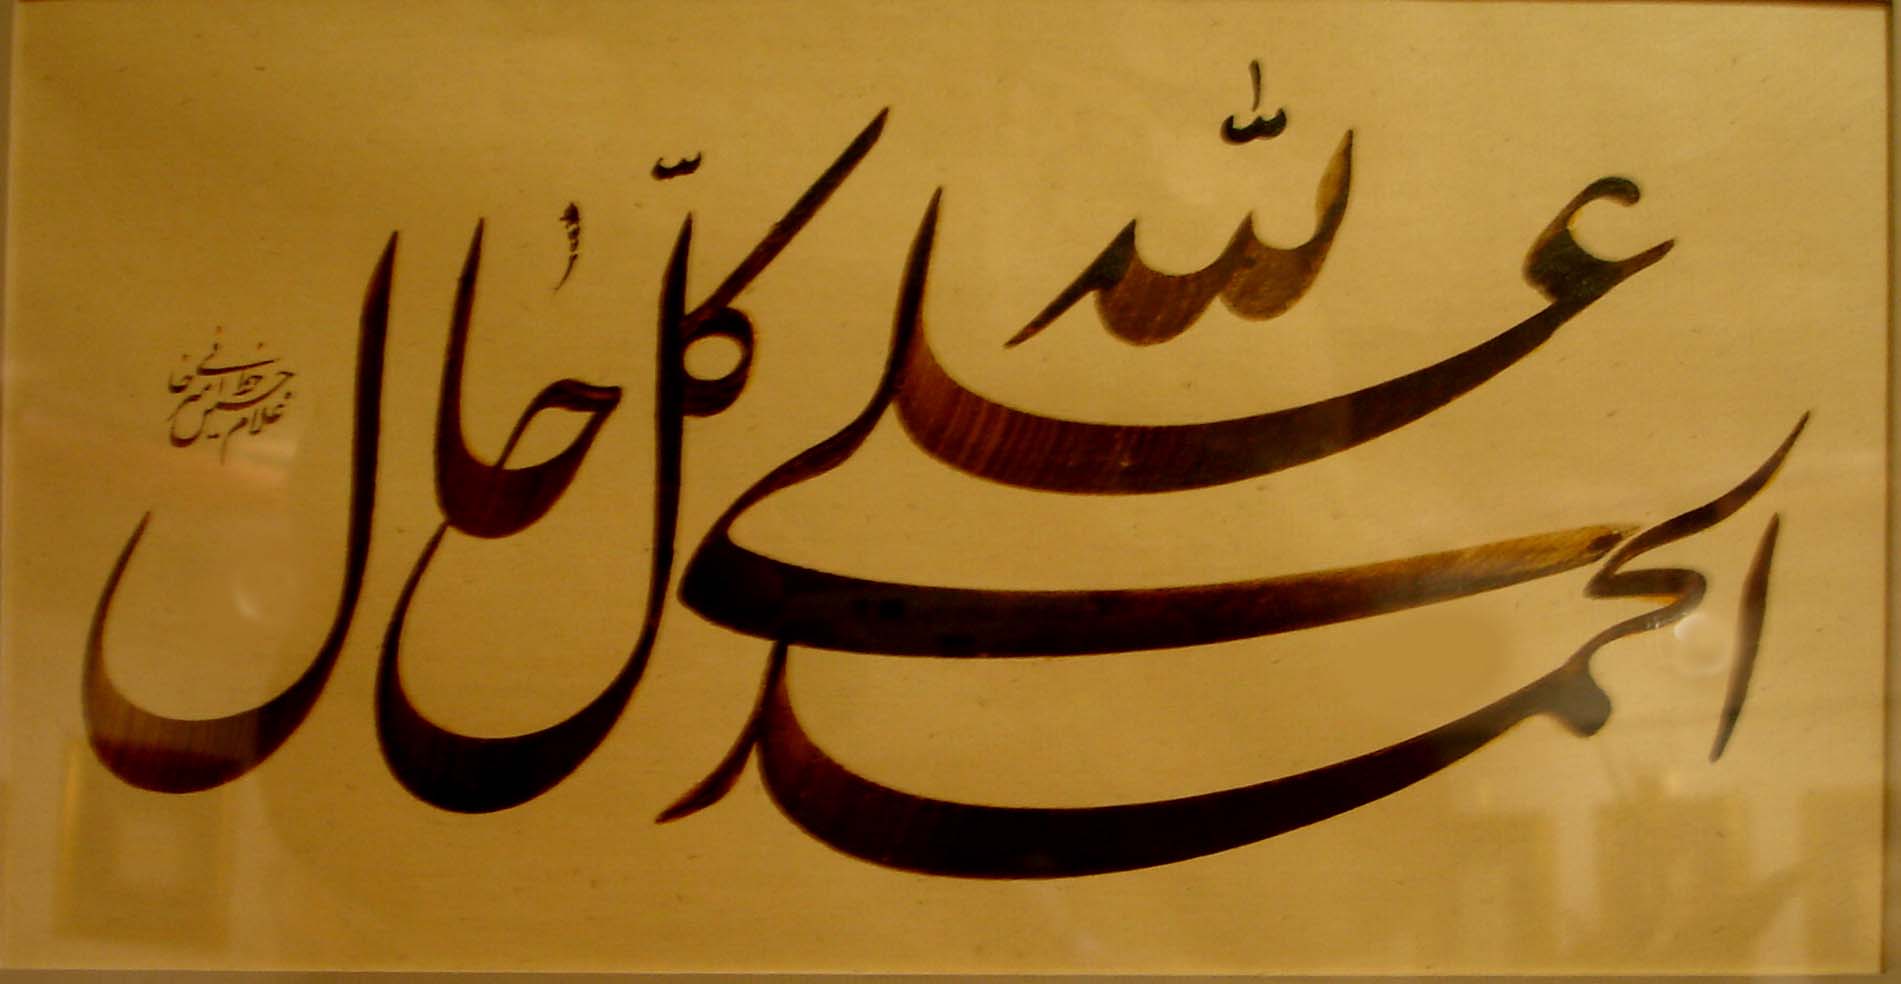 الحمد لله علی کلّ حال
غلامحسین امیرخانی